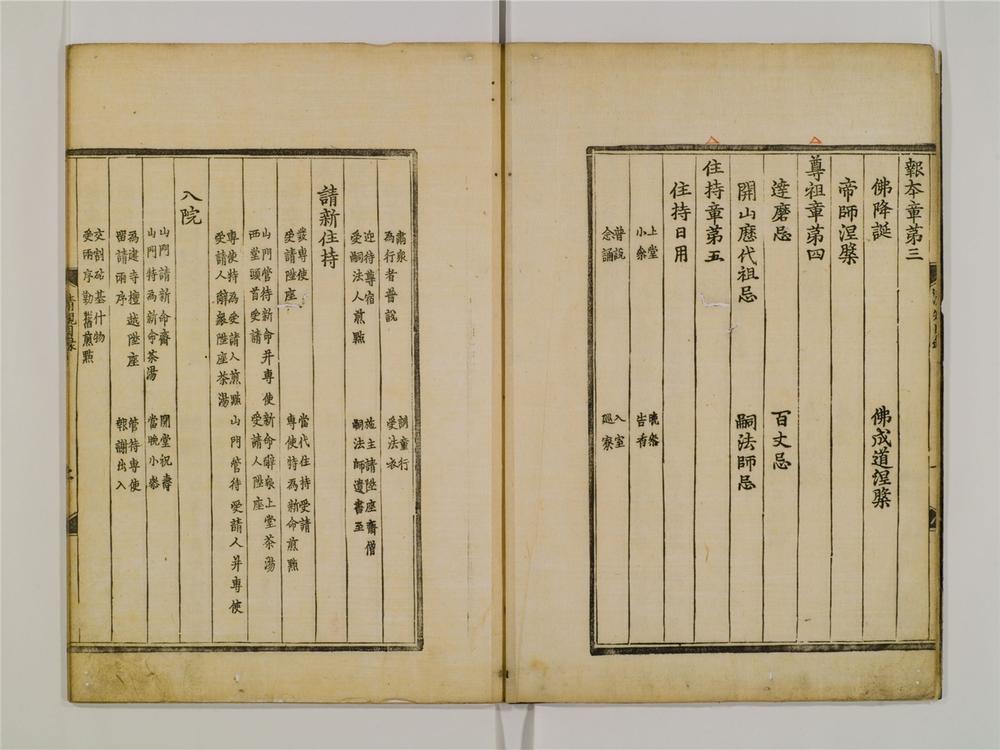 報本章第三
佛降誕 佛成道涅槃
帝師涅槃
尊祖章第四
達磨忌 百丈忌
開山歷代祖忌 嗣法師忌
住持章第五
住持日用
上堂 晚參
小參 告香
普說 入室
念誦 巡寮
肅衆 訓童行
為行者普說 受法衣
迎待尊宿 施主請陞座齋僧
受嗣法人煎點 嗣法師遺書至
請新住持
發專使 當代住持受請
受請陞座 專使特為新命煎點
山門管待新命并專使 新命辭衆上堂茶湯
西堂頭首受請 受請人陞座
專使特為受請人煎點 山門管待受請人并專使
受請人辭衆陞座茶湯
入院
山門請新命齋 開堂祝壽
山門特為新命茶湯 當晚小參
為建寺檀越陞座 管待專使
留請兩序 報謝出入
交割砧基什物
受兩序勤舊煎點